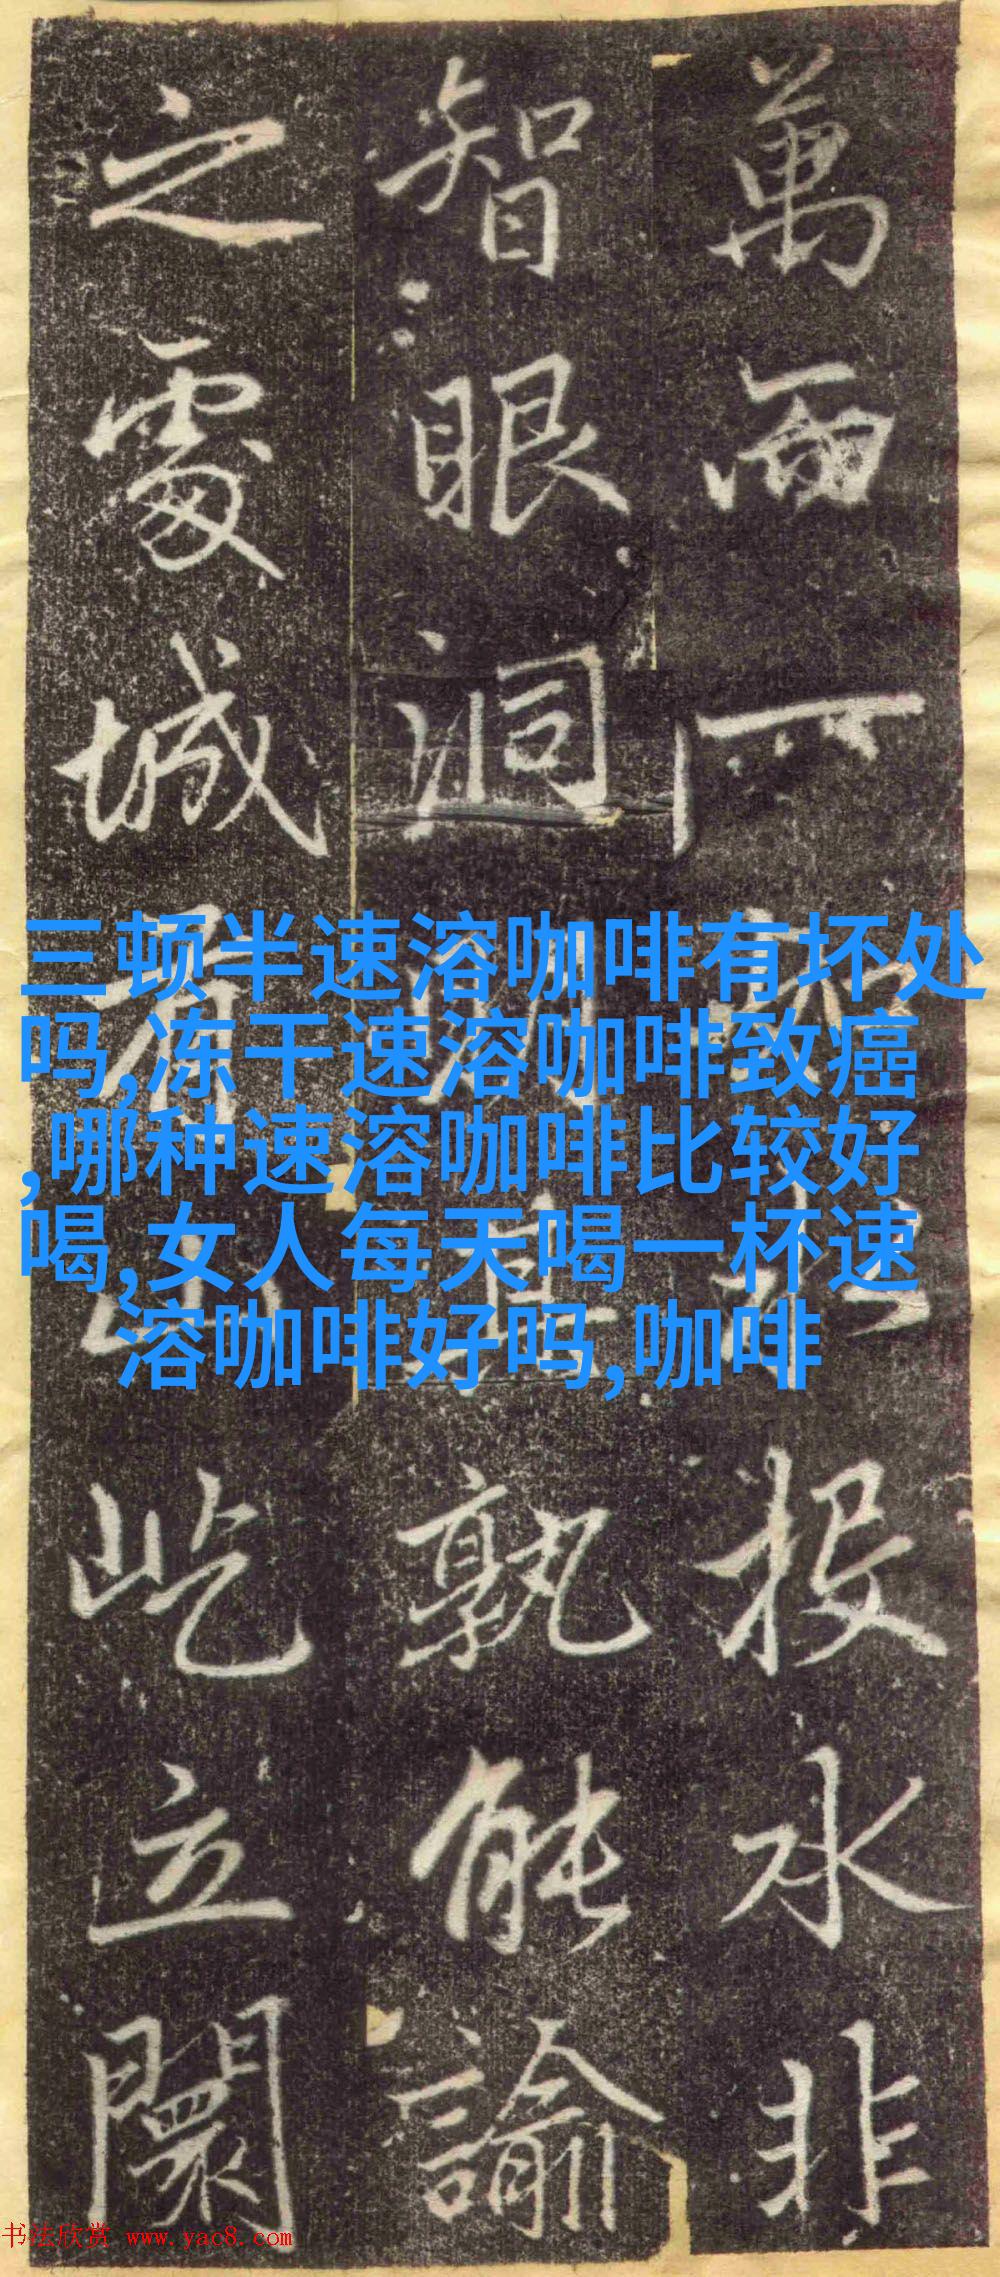 萬一投水非
智眼洞孰能諭
之處城屹立闤
三顿半速溶咖啡有坏处
吗,冻干速溶咖啡致癌
,哪种速溶咖啡比较好
喝,女人每天喝一杯速
溶咖啡好吗,咖啡
书法欣赏 www.yac8.com